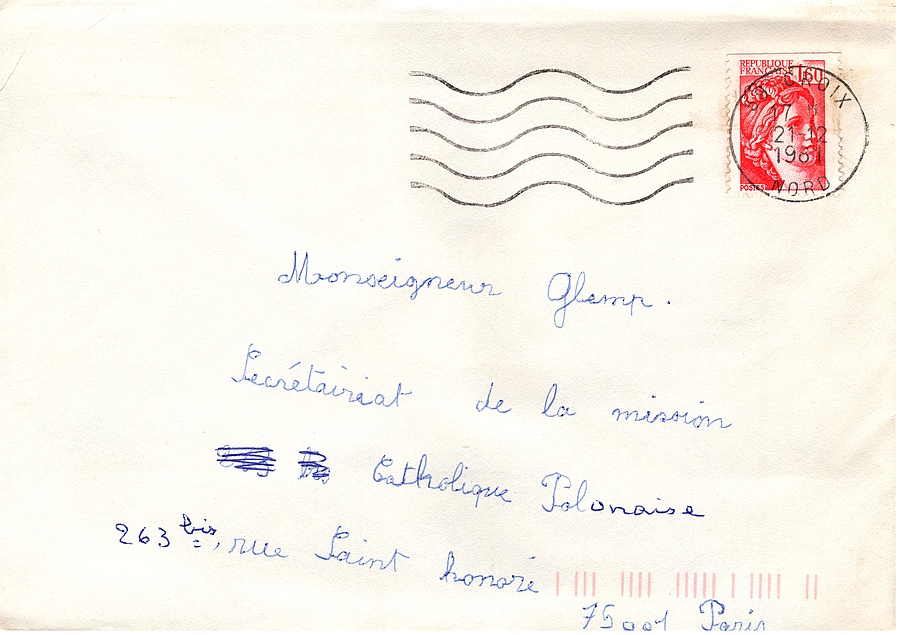 REPUBLIQUE
FRANÇAISE 1,60
CROIX
17 H
21-12
1981
NORD
POSTES
Monseigneur Glemp.
Secrétairiat de la mission
Catholique Polonaise
263 bis, rue Saint honoré
75001 Paris